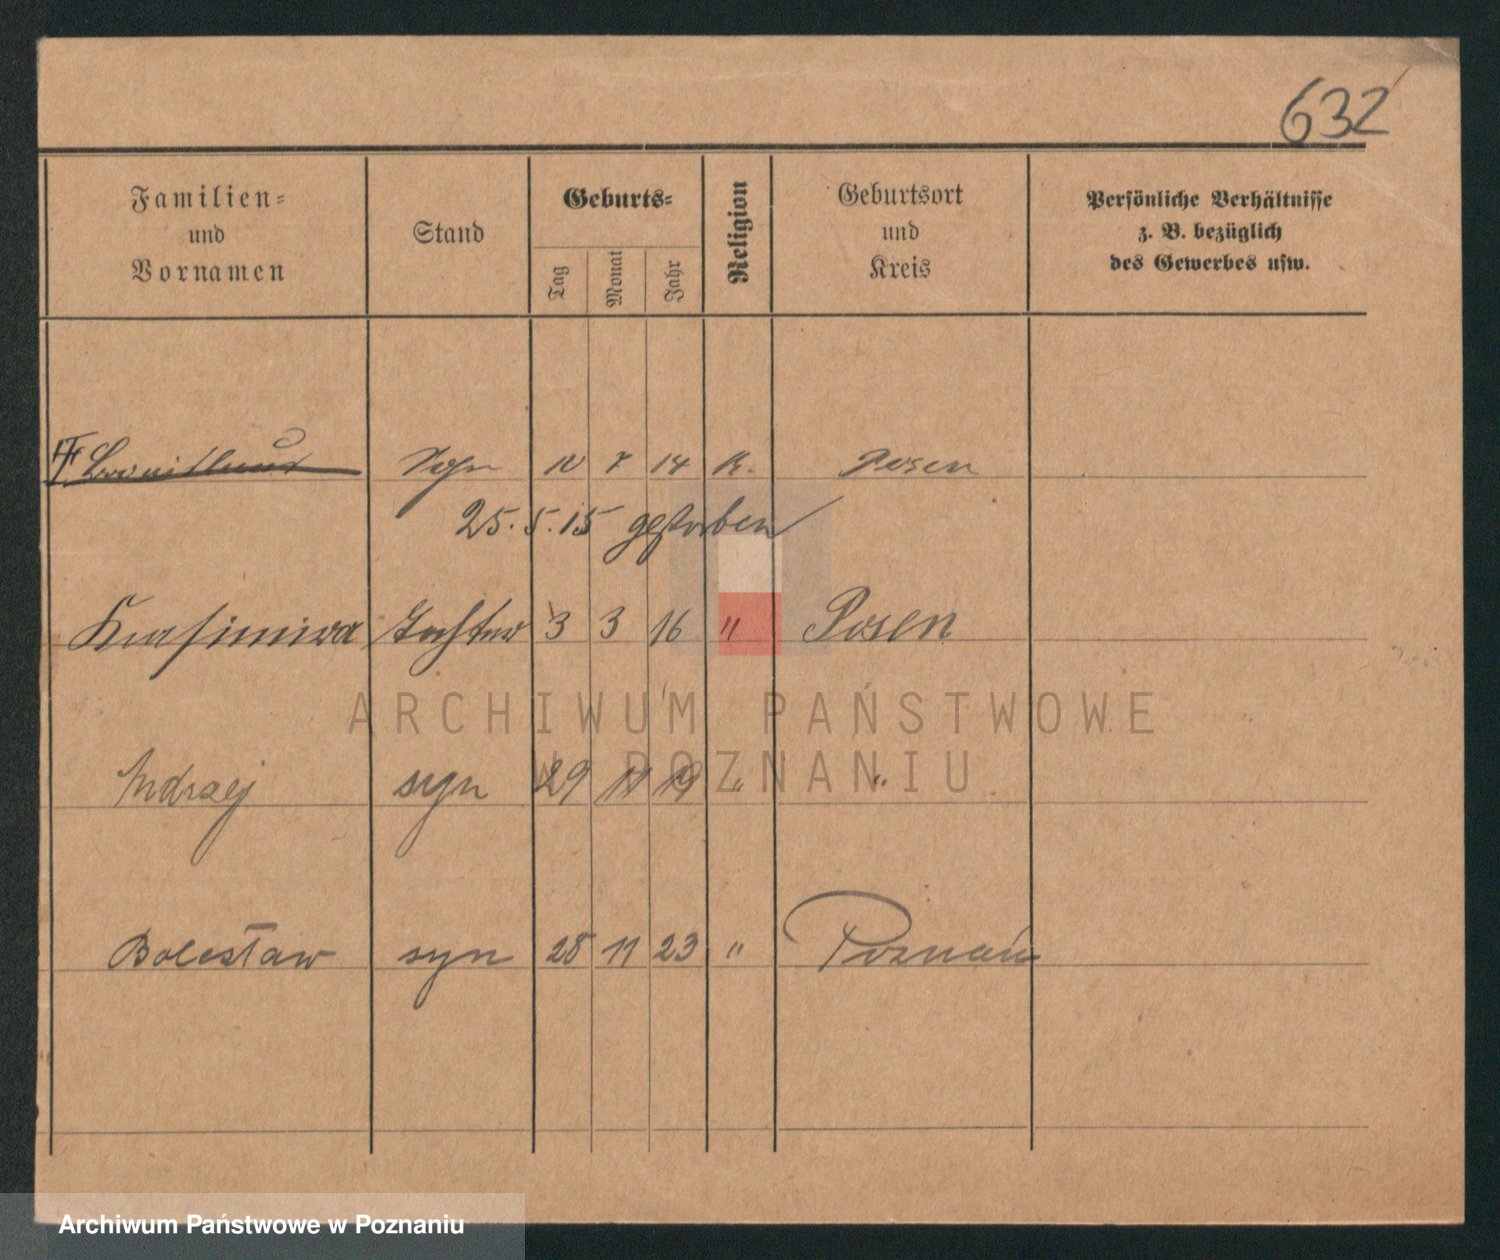 632
Familien= und Vornamen
Stand
Geburts=
Tag
Monat
Jahr
Religion
Geburtsort und Kreis
Persönliche Verhältnisse z. B. bezüglich des Gewerbes usw.
Sohn 14 K. Posen
25.5.15 gestorben
Kasimira Tochter 3 3 16 " Posen
ARCHIWUM PAŃSTWOWE
W POZNANIU
Andrzej syn 29 11 19 " "
Bolesław syn 28 11 23 " Poznań
Archiwum Państwowe w Poznaniu